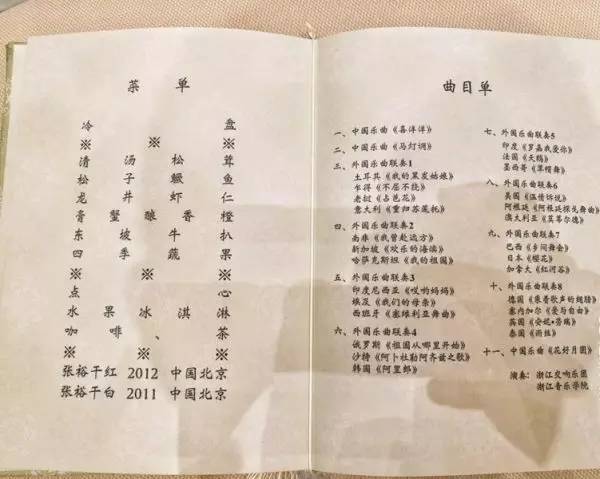 菜 单
冷 盘
※ ※ ※
清 汤 松 茸
松 子 鳜 鱼
龙 井 虾 仁
膏 蟹 酿 香 橙
东 坡 牛 扒
四 季 蔬 果
※ ※ ※
点 心
水 果 冰 淇 淋
咖 啡 、 茶
※ ※ ※
张裕干红 2012 中国北京
张裕干白 2011 中国北京
曲目单
一、中国乐曲《喜洋洋》
二、中国乐曲《马灯调》
三、外国乐曲联奏1
土耳其《我的黑发姑娘》
乍得《不屈不挠》
老挝《占芭花》
意大利《重归苏莲托》
四、外国乐曲联奏2
南非《我曾赴远方》
新加坡《欢乐的海滨》
哈萨克斯坦《我的祖国》
五、外国乐曲联奏3
印度尼西亚《哎哟妈妈》
埃及《我们的母亲》
西班牙《塞维利亚舞曲》
六、外国乐曲联奏4
俄罗斯《祖国从哪里开始》
沙特《阿卜杜勒阿齐兹之歌》
韩国《阿里郎》
七、外国乐曲联奏5
印度《罗嘉我爱你》
法国《天鹅》
墨西哥《草帽舞》
八、外国乐曲联奏6
美国《温情诉说》
阿根廷《阿根廷探戈舞曲》
澳大利亚《莫蒂尔德》
九、外国乐曲联奏7
巴西《乡间舞会》
日本《樱花》
加拿大《红河谷》
十、外国乐曲联奏8
德国《乘着歌声的翅膀》
塞内加尔《爱与自由》
英国《安妮·劳瑞》
泰国《雨丝》
十一、中国乐曲《花好月圆》
演奏:浙江交响乐团
浙江音乐学院